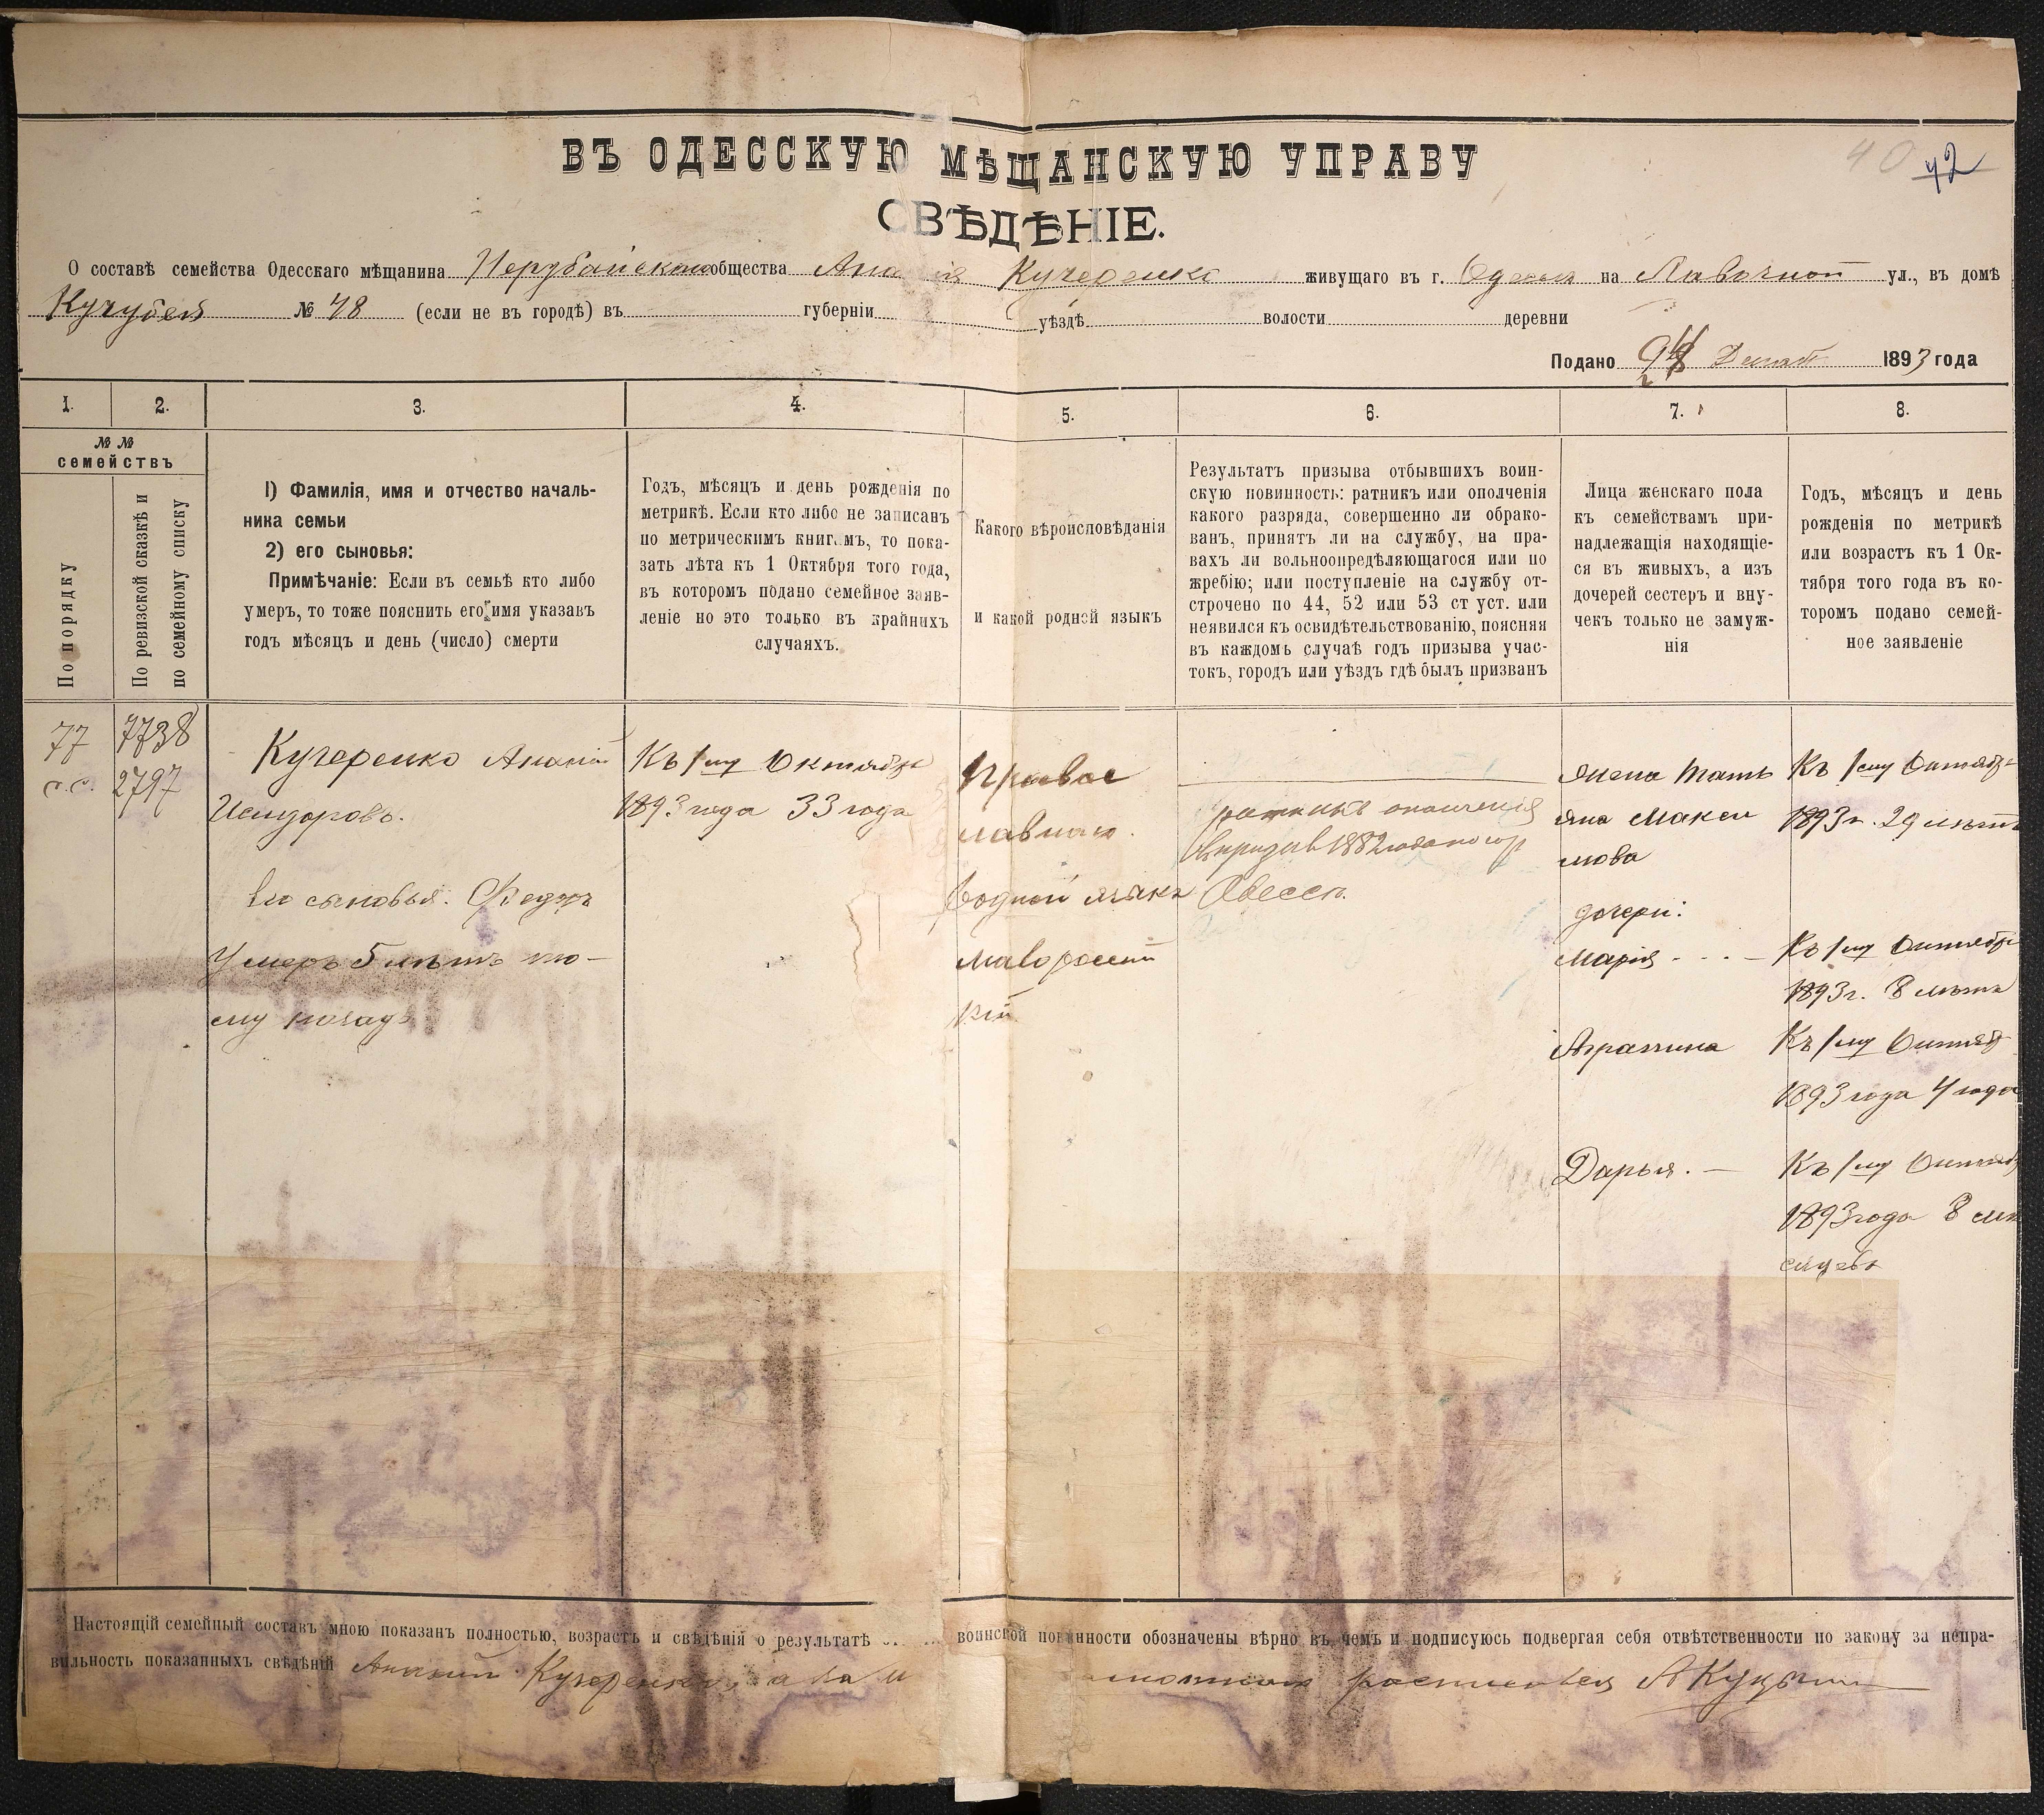 40 42
ВЪ ОДЕССКУЮ МѢЩАНСКУЮ УПРАВУ
СВѢДѢНІЕ.
О составѣ семейства Одесскаго мѣщанина Нерубайскаго общества Кучеренко живущаго въ г. Одессѣ на Лавочной ул., въ домѣ
Кучубея № 48 (если не въ городѣ) въ губерніи уѣздѣ волости деревни
Подано 1893 года
1. 2. 3. 4. 5. 6. 7. 8.
№ №
семействъ
По порядку
По ревизской сказкѣ и
по семейному списку
1) Фамилія, имя и отчество началь-
ника семьи
2) его сыновья:
Примѣчаніе: Если въ семьѣ кто либо
умеръ, то тоже пояснить его имя указавъ
годъ мѣсяцъ и день (число) смерти
Годъ, мѣсяцъ и день рожденія по
метрикѣ. Если кто либо не записанъ
по метрическимъ книгамъ, то пока-
зать лѣта къ 1 Октября того года,
въ которомъ подано семейное заяв-
леніе но это только въ крайнихъ
случаяхъ.
Какого вѣроисповѣданія
и какой родной языкъ
Результатъ призыва отбывшихъ воин-
скую повинность: ратникъ или ополченія
какого разряда, совершенно ли обрако-
ванъ, принятъ ли на службу, на пра-
вахъ ли вольноопредѣляющагося или по
жребію; или поступленіе на службу от-
строчено по 44, 52 или 53 ст уст. или
неявился къ освидѣтельствованію, поясняя
въ каждомъ случаѣ годъ призыва учас-
токъ, городъ или уѣздъ гдѣ былъ призванъ
Лица женскаго пола
къ семействамъ при-
надлежащія находящіе-
ся въ живыхъ, а изъ
дочерей сестеръ и вну-
чекъ только не замуж-
нія
Годъ, мѣсяцъ и день
рожденія по метрикѣ
или возрастъ къ 1 Ок-
тября того года въ ко-
торомъ подано семей-
ное заявленіе
77
с.с.
7738
2797
Кучеренко Ананій
Исидоровъ.
Его сыновья: Федоръ
Умеръ 5 лѣтъ то-
му назадъ
Къ 1му Октября
1893 года 33 года
Правос
лавнаго.
Родной языкъ
Малоросcій
кій
ратникъ ополченія
въ призывъ 1882 года по гор
Одессѣ.
жена Татъ
яна Макси
мова
дочери:
Марія - . . -
Аграпина
Дарья. -
Къ 1му Октября
1893 г. 29 лѣтъ
Къ 1му Октября
1893 г. 8 лѣтъ
Къ 1му Октяб
1893 года 4 года
Къ 1му Октяб
1893 года 8 мѣ
сяцевъ
Настоящій семейный составъ мною показанъ полностью, возрастъ и свѣдѣнія о результатѣ воинской повинности обозначены вѣрно въ чемъ и подписуюсь подвергая себя отвѣтственности по закону за непра-
вильность показанныхъ свѣдѣній Ананій Кучеренко, а за росписался